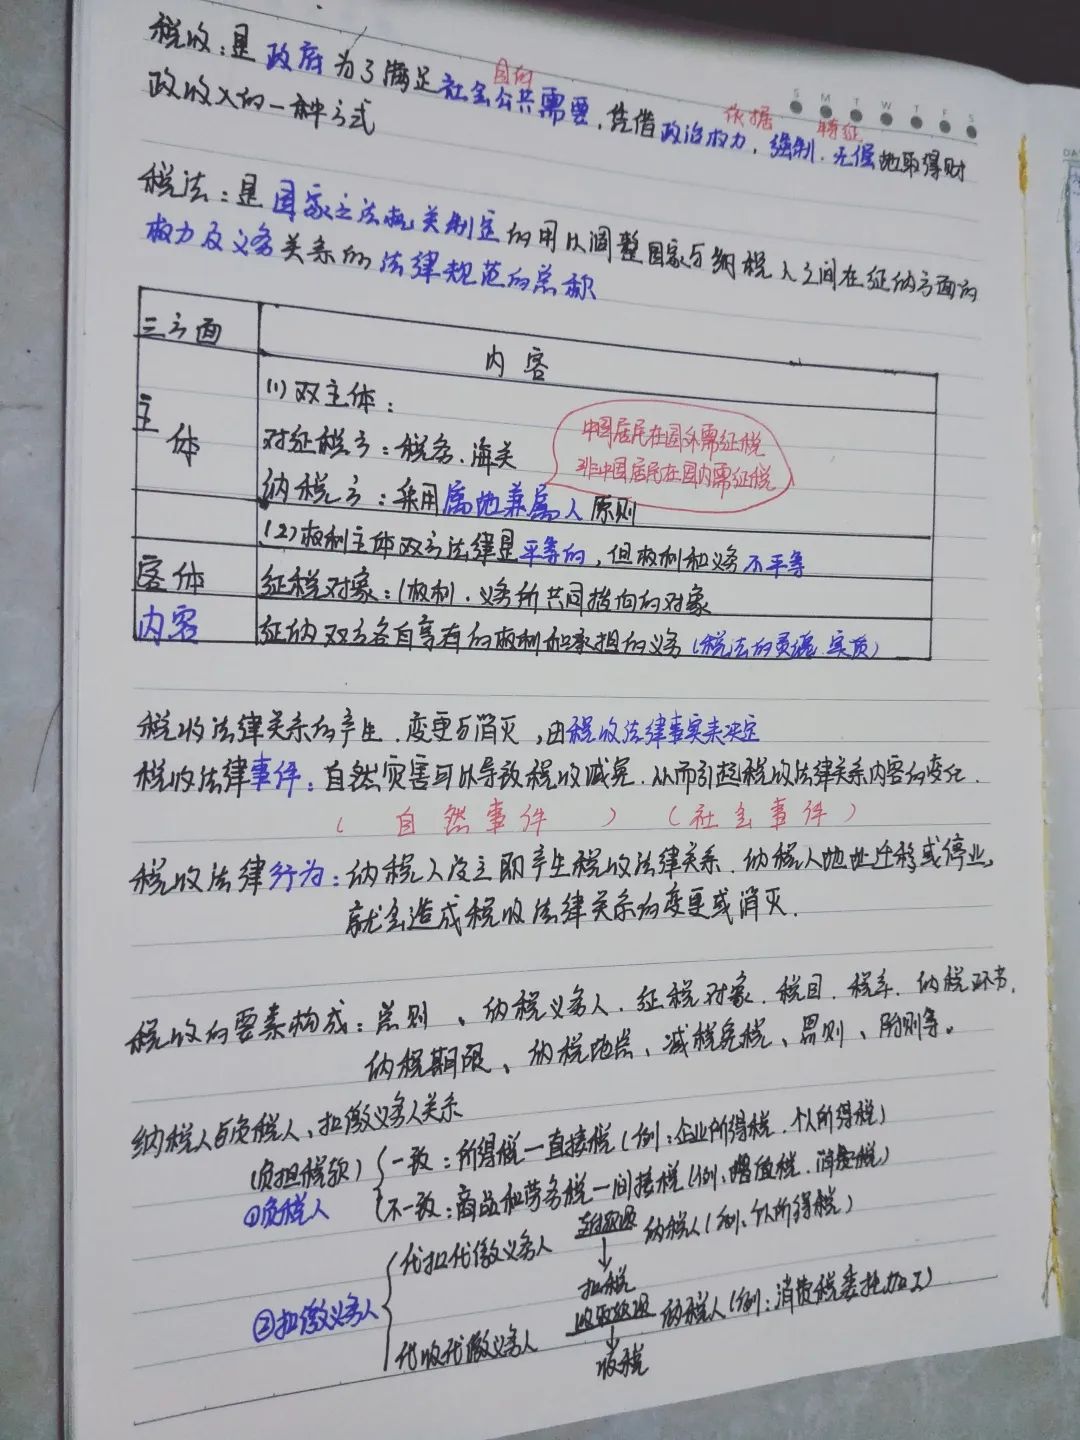 目的
税收：是政府为了满足社会公共需要，凭借政治权力，强制、无偿地取得财
依据 特征
S M T W T F S
政收入的一种方式
税法：是国家立法机关制定的用以调整国家与纳税人之间在征纳方面的
权力及义务关系的法律规范的总称
三方面 内容
主体 (1)双主体：
对征税方：税务、海关
中国居民在国外需征税
非中国居民在国内需征税
纳税方：采用属地兼属人原则
(2)权利主体双方法律是平等的，但权利和义务不平等
客体 征税对象：(权利、义务所共同指向的对象
内容 征纳双方各自享有的权利和承担的义务(税法的灵魂、实质)
税收法律关系的产生、变更与消灭，由税收法律事实来决定
税收法律事件：自然灾害可以导致税收减免，从而引起税收法律关系内容的变化.
(自然事件) (社会事件)
税收法律行为：纳税人设立即产生税收法律关系，纳税人地址迁移或停业，
就会造成税收法律关系的变更或消灭.
税收的要素构成：总则、纳税义务人、征税对象、税目、税率、纳税环节、
纳税期限、纳税地点、减税免税、罚则、附则等。
纳税人与负税人、扣缴义务人关系
(负担税款) 一致：所得税—直接税(例：企业所得税、个人所得税)
①负税人 不一致：商品和劳务税—间接税(例、增值税、消费税)
代扣代缴义务人 支付款项 纳税人(例、个人所得税)
↓
扣税
②扣缴义务人
代收代缴义务人 收取款项 纳税人(例：消费税委托加工)
↓
收税